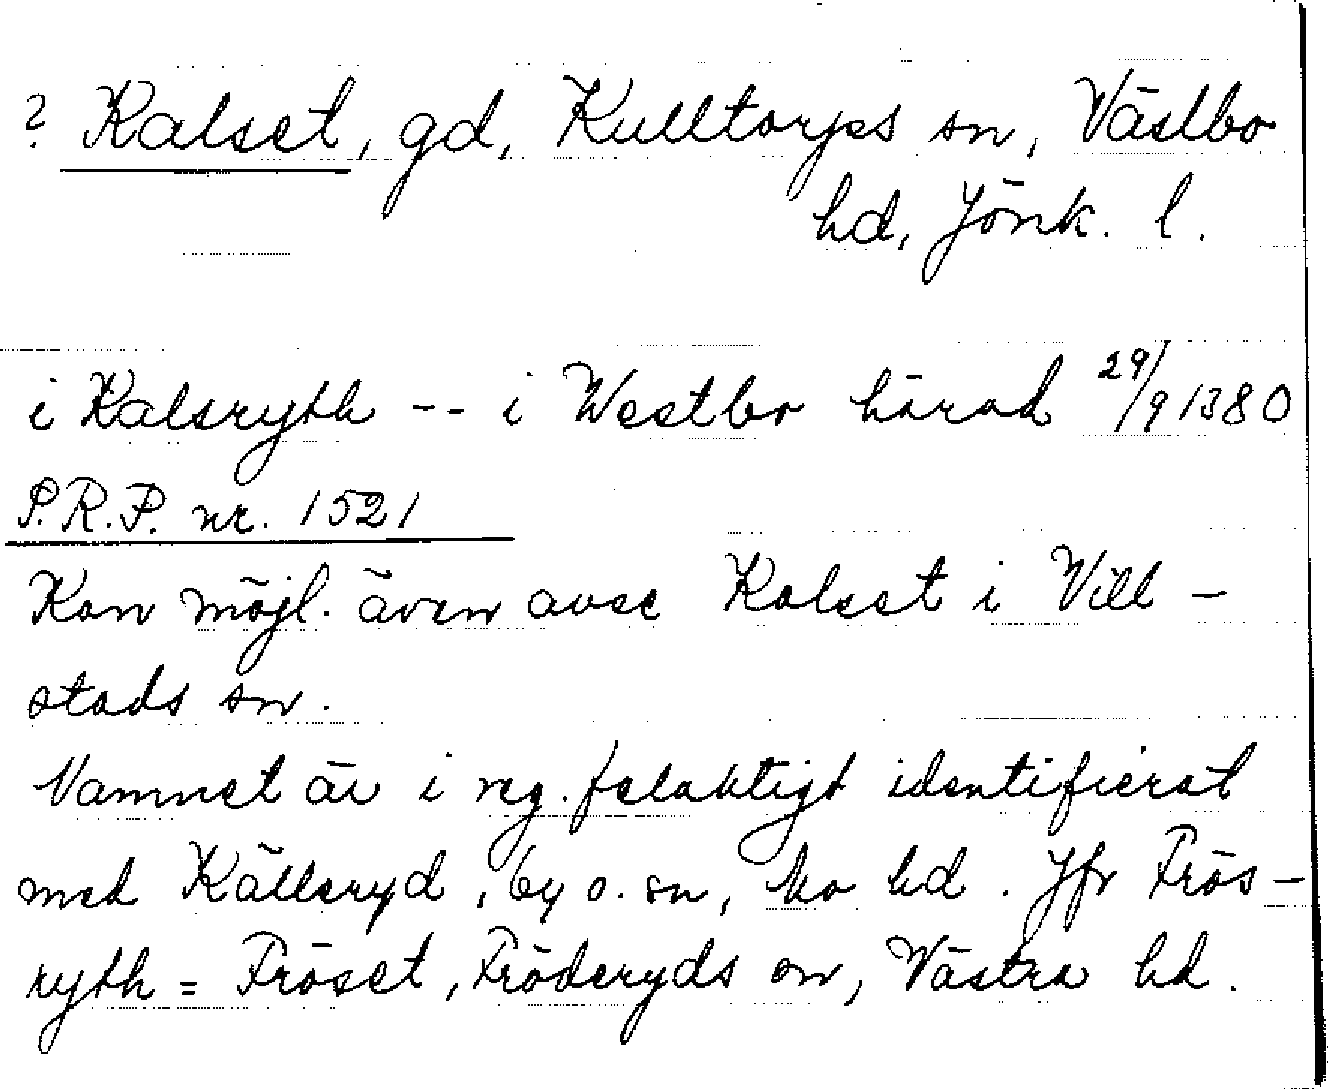 ? Kalset, gd, Kulltorps sn, Västbo
hd, Jönk. l.
i Kalsryth -- i Westbo härad 29/9 1380
S.R.P. nr. 1521
Kan möjl. även avse Kalset i Vill-
stads sn.
Namnet är i reg. felaktigt identifierat
med Källeryd, by o. sn, Mo hd. Jfr Frös-
ryth = Fröset, Fröderyds sn, Västra hd.